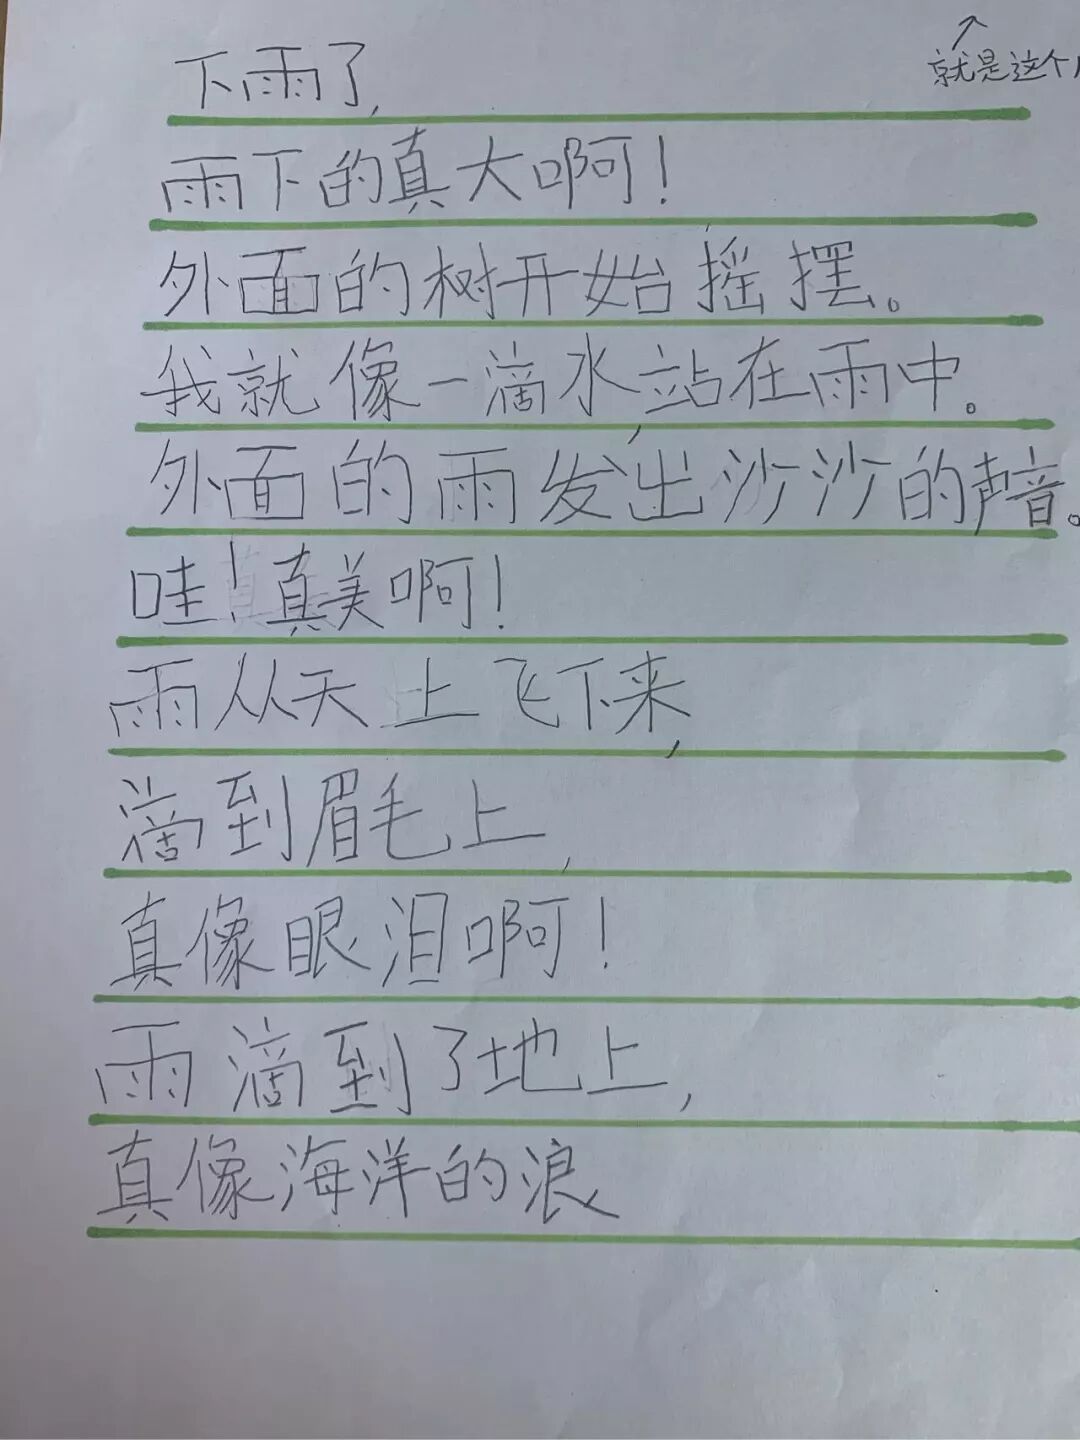 就是这个
下雨了,
雨下的真大啊!
外面的树开始摇摆。
我就像一滴水,站在雨中。
外面的雨发出沙沙的声音。
哇!真美啊!
雨从天上飞下来,
滴到眉毛上,
真像眼泪啊!
雨滴到了地上,
真像海洋的浪